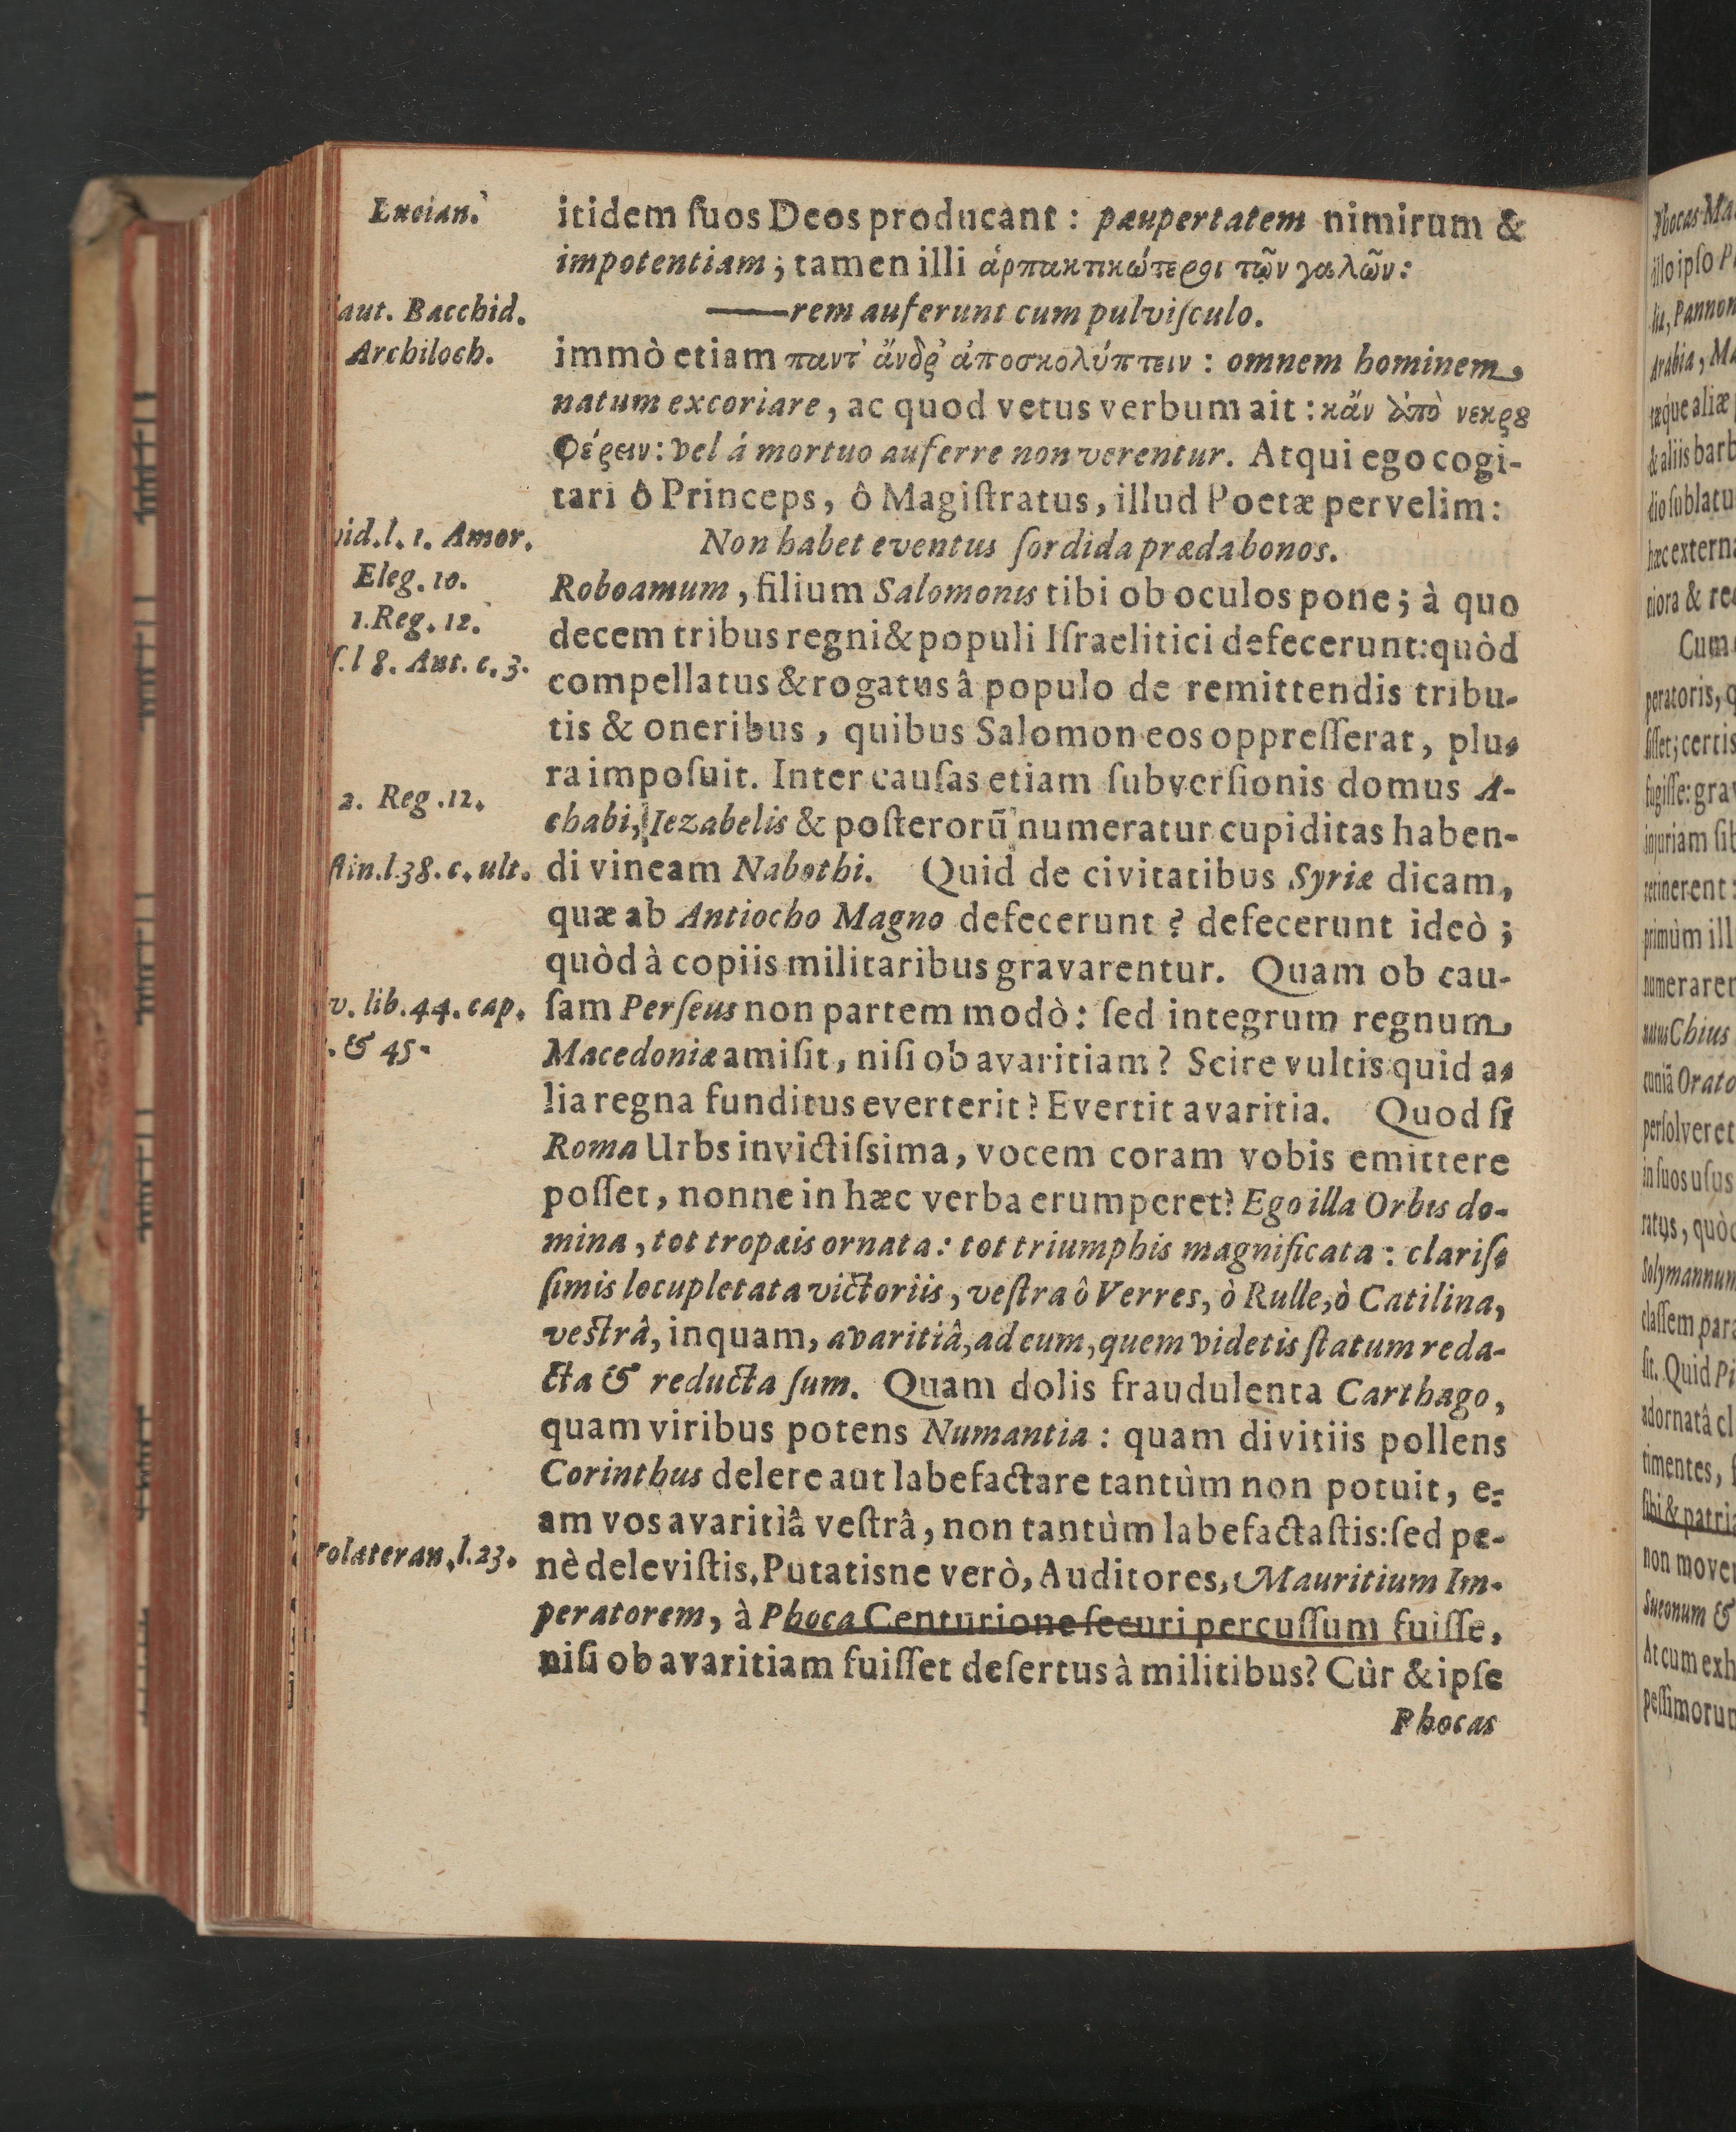 Lucian.
itidem ſuos Deos producant : paupertatem nimirum &
impotentiam ; tamen illi ἁρπακτικώτεροι τῶν γαλῶν :
aut. Bacchid.
——rem auferunt cum pulviſculo.
Archiloch.
immò etiam παντ' ἄνδρ' ἀποσκολύπτειν : omnem hominem
natum excoriare , ac quod vetus verbum ait : κἄν ἀπὸ νεκρȣ
φέρειν : vel á mortuo auferre non verentur. Atqui ego cogi-
tari ô Princeps, ô Magiſtratus, illud Poetæ pervelim:
vid.l. 1. Amor.
Eleg. 10.
Non habet eventus ſordida præda bonos.
1.Reg. 12.
Roboamum , filium Salomonis tibi ob oculos pone ; à quo
decem tribus regni & populi Iſraelitici defecerunt: quòd
ſ.l 8. Ant. c. 3.
compellatus & rogatus â populo de remittendis tribu-
tis & oneribus , quibus Salomon eos oppreſſerat, plu-
ra impoſuit. Inter cauſas etiam ſubverſionis domus A-
2. Reg .12.
chabi, Iezabelis & poſterorū numeratur cupiditas haben-
ſtin.l.38. c. ult.
di vineam Nabothi. Quid de civitatibus Syriæ dicam,
quæ ab Antiocho Magno defecerunt ? defecerunt ideò ;
quòd à copiis militaribus gravarentur. Quam ob cau-
v. lib.44. cap.
ſam Perſeus non partem modò : ſed integrum regnum
. & 45.
Macedoniæ amiſit, niſi ob avaritiam ? Scire vultis quid a-
lia regna funditus everterit ? Evertit avaritia. Quod ſi
Roma Urbs invictiſsima, vocem coram vobis emittere
poſſet, nonne in hæc verba erumperet? Ego illa Orbis do-
mina , tot tropæis ornata : tot triumphis magnificata : clariſ-
ſimis locupletata victoriis , veſtra ô Verres, ò Rulle, ò Catilina,
veſtrâ, inquam, avaritiâ, ad eum, quem videtis ſtatum reda-
cta & reducta ſum. Quam dolis fraudulenta Carthago,
quam viribus potens Numantia : quam divitiis pollens
Corinthus delere aut labefactare tantùm non potuit, e-
am vos avaritiâ veſtrâ, non tantùm labefactaſtis: ſed pe-
olateran.l.23.
nè deleviſtis. Putatisne verò, Auditores, Mauritium Im-
peratorem, à Phoca Centurione ſecuri percuſſum fuiſſe,
niſi ob avaritiam fuiſſet deſertus à militibus? Cùr & ipſe
Phocas
Phocas Ma
illo ipſo P
lia, Pannon
Arabia, Ma
tæque aliæ
& aliis barb
dio ſublatu
hæc extern
niora & re
Cum
peratoris, q
ſiſſet; certis
fugiſſe: gra
injuriam ſib
retinerent:
primùm ill
numerarer
natus Chius
cuniā Orato
perſolveret
in ſuos uſus
ratus, quòd
Solymannum
claſſem par
ſit. Quid Pi
adornatâ cl
timentes, ſ
ſibi & patri
non move
Sueonum &
At cum exh
peſſimorum